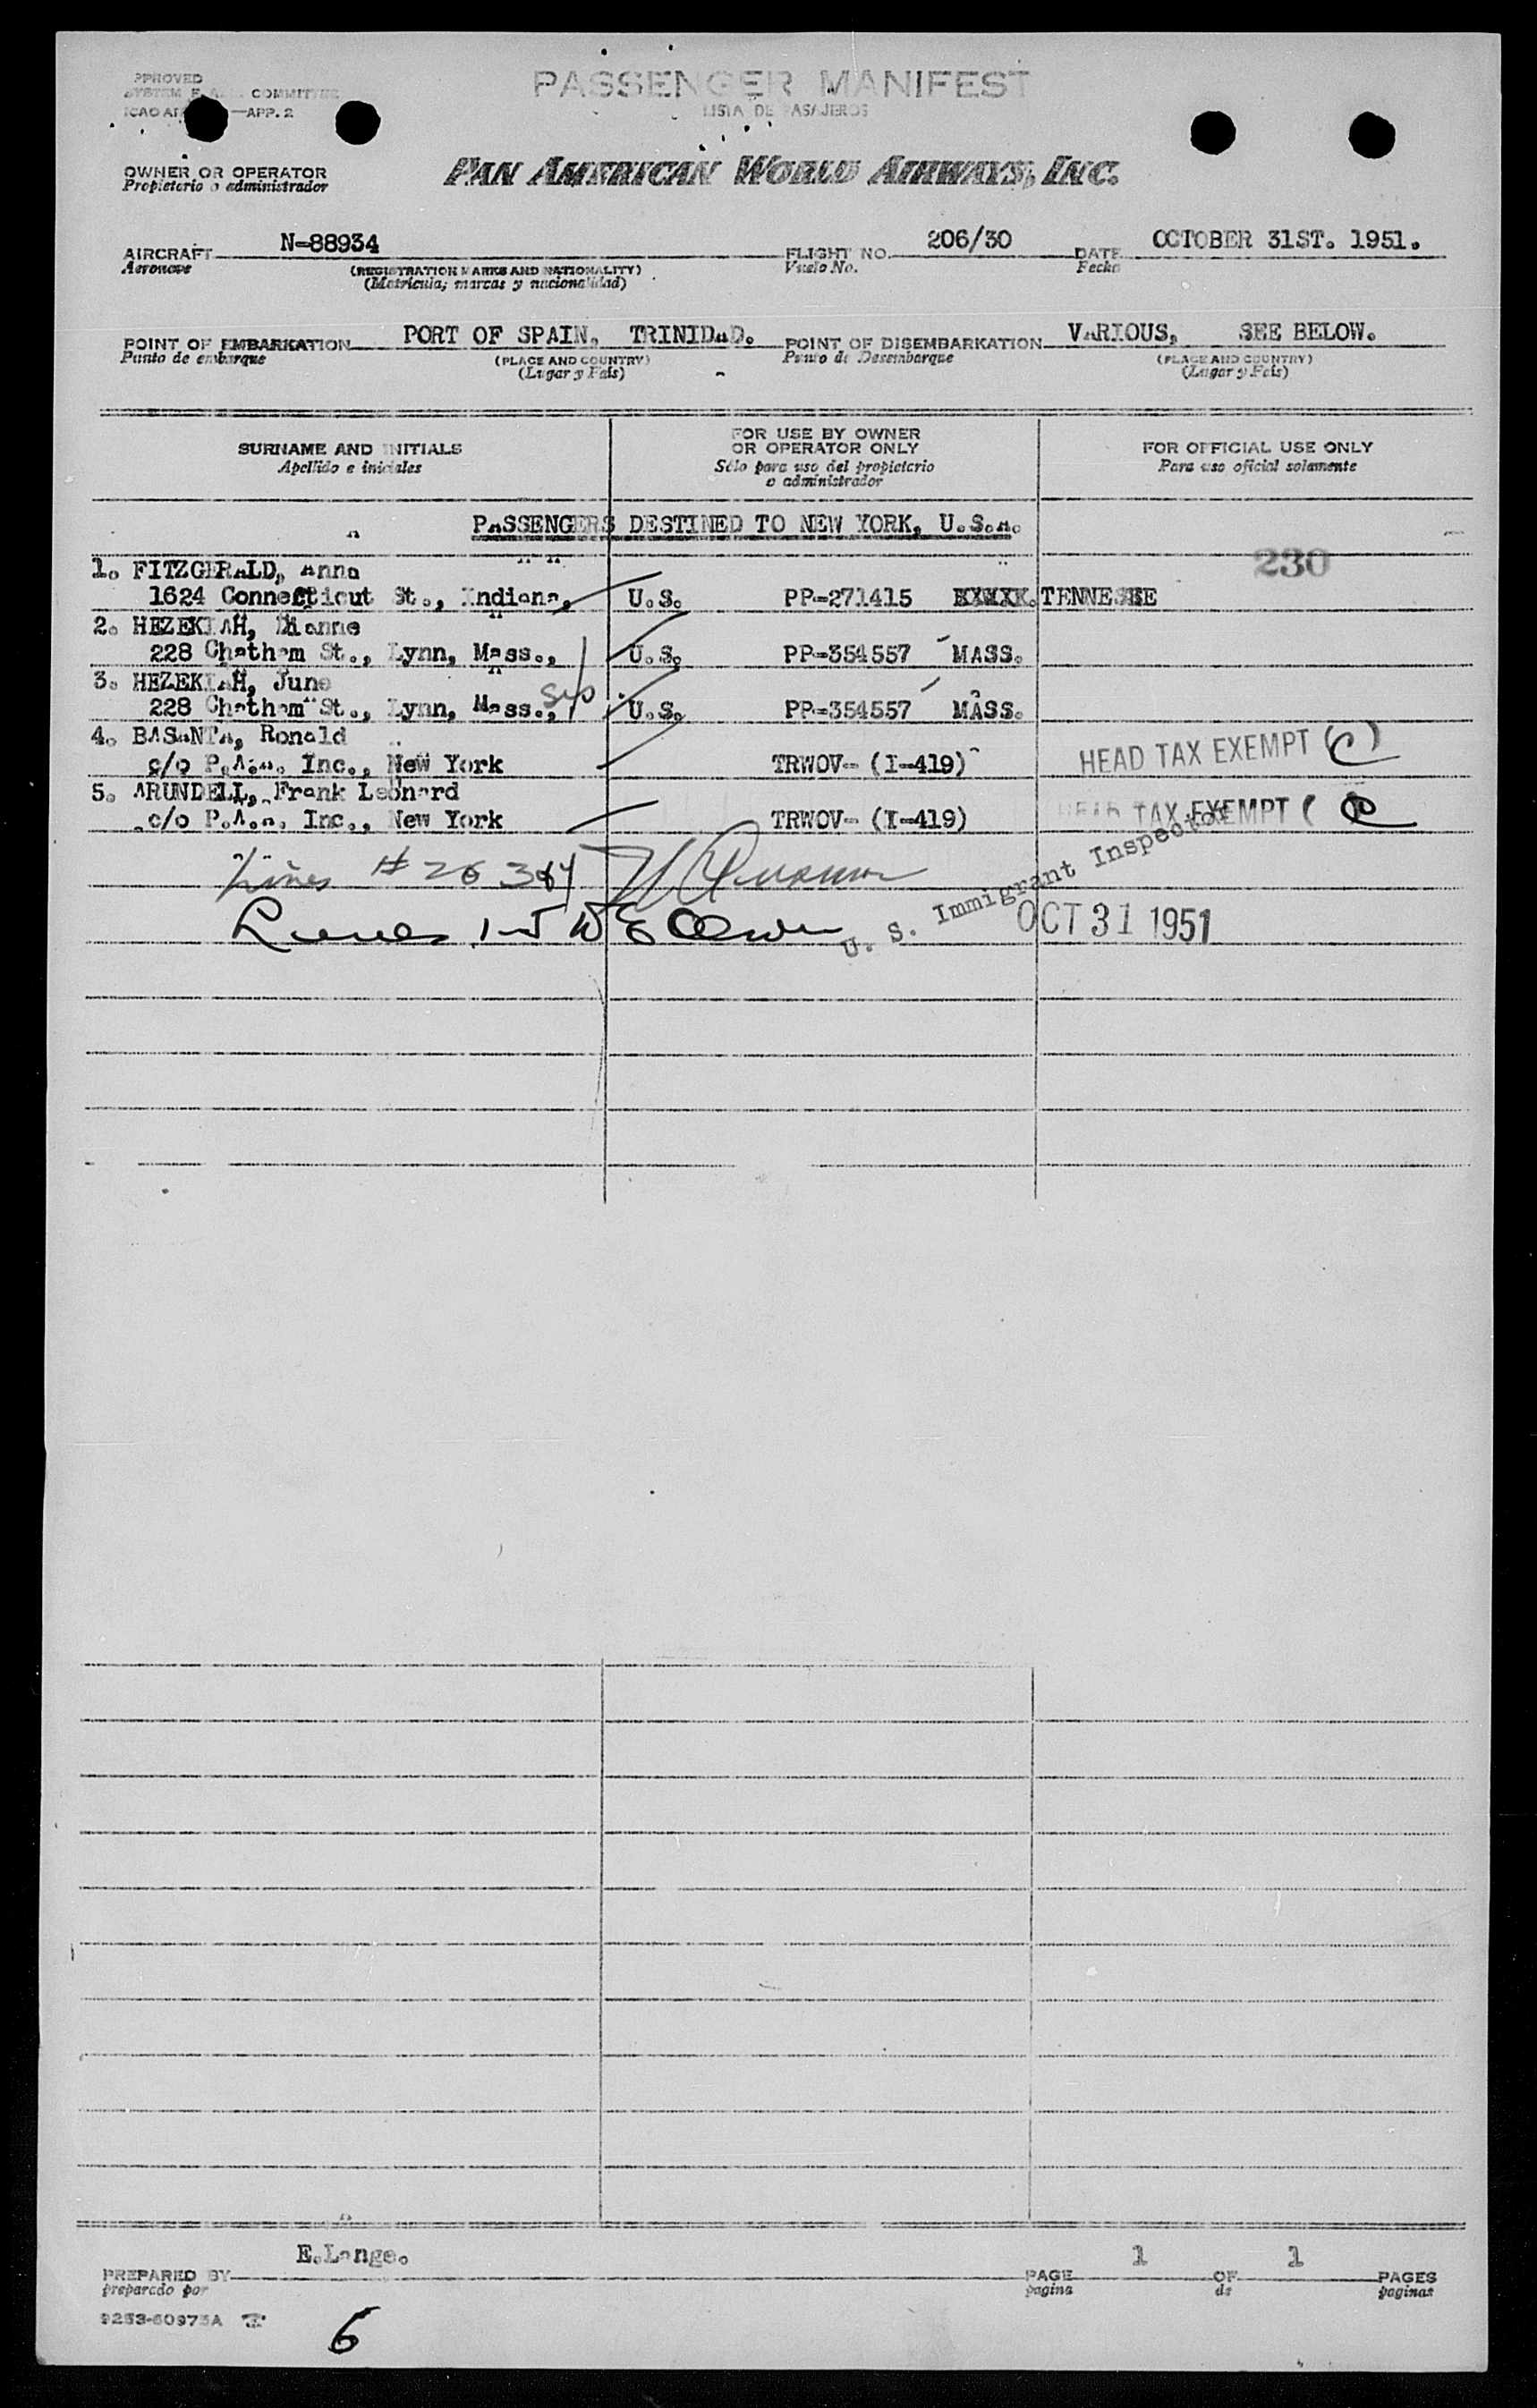 PASSENGER MANIFEST
LISTA DE PASAJEROS
APPROVED
SYSTEM COMMITTEE
ICAO —APP. 2
OWNER OR OPERATOR
Propietario o administrador
PAN AMERICAN WORLD AIRWAYS, INC.
AIRCRAFT N-88934 FLIGHT NO. 206/30 DATE OCTOBER 31ST. 1951.
Aeronave (REGISTRATION MARKS AND NATIONALITY) Vuelo No. Fecha
(Matrícula; marcas y nacionalidad)
POINT OF EMBARKATION PORT OF SPAIN, TRINIDAD. POINT OF DISEMBARKATION VARIOUS, SEE BELOW.
Punto de embarque (PLACE AND COUNTRY) Punto de Desembarque (PLACE AND COUNTRY)
(Lugar y País) (Lugar y País)
SURNAME AND INITIALS FOR USE BY OWNER OR OPERATOR ONLY FOR OFFICIAL USE ONLY
Apellido e iniciales Sólo para uso del propietario o administrador Para uso oficial solamente
PASSENGERS DESTINED TO NEW YORK, U.S.A.
230
1. FITZGERALD, Anna
1624 Connecticut St., Indiana, U.S. PP-271415 TENNESSEE
2. HEZEKIAH, Dianne
228 Chatham St., Lynn, Mass., U.S. PP-354557 MASS.
3. HEZEKIAH, June
228 Chatham St., Lynn, Mass., U.S. PP-354557 MASS.
4. BASANTA, Ronald
c/o P.A.A. Inc., New York TRWOV- (I-419) HEAD TAX EXEMPT (C)
5. ARUNDELL, Frank Leonard
c/o P.A.A. Inc., New York TRWOV- (I-419) HEAD TAX EXEMPT (
U. S. Immigrant Inspector
OCT 31 1951
E.Lange.
PREPARED BY PAGE 1 OF 1 PAGES
preparado por pagina de paginas
6